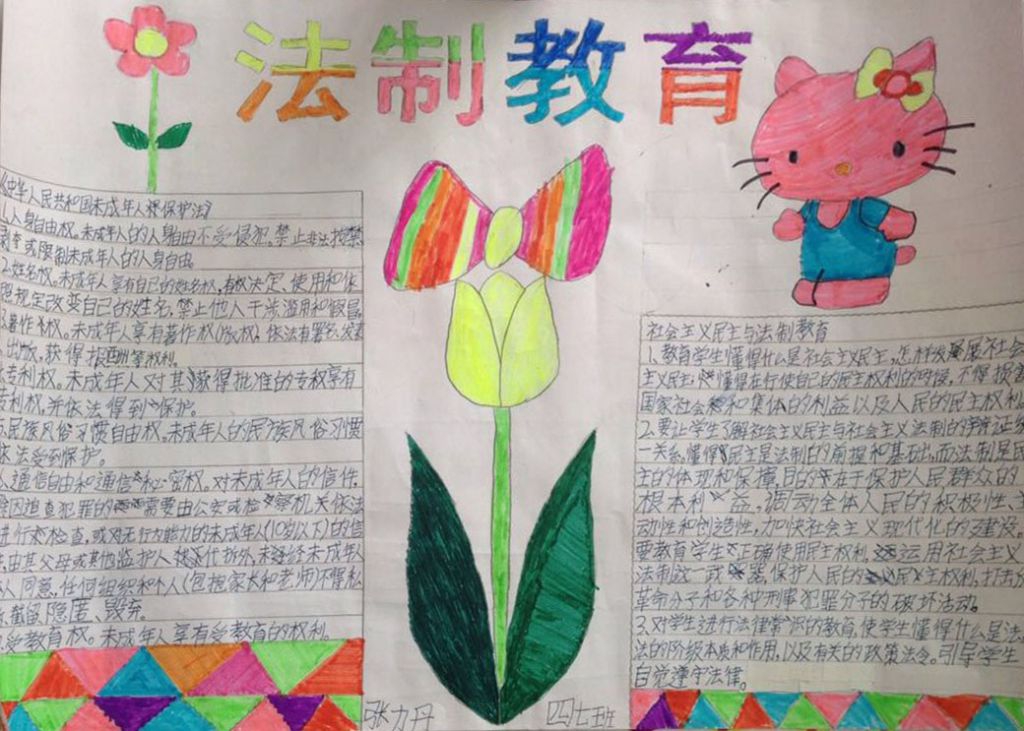 法制教育
《中华人民共和国未成年人保护法》
1.人身自由权。未成年人的人身自由不受侵犯。禁止非法搜禁
剥夺或限制未成年人的人身自由
2.姓名权。未成年人享有自己的姓名权,有权决定、使用和依
照规定改变自己的姓名,禁止他人干涉滥用和假冒
3.著作权。未成年人享有著作权(版权),依法有署名,发表
出版,获得报酬等权利。
专利权。未成年人对其获得批准的专权享有
专利权,并依法得到保护。
5.民族风俗习惯自由权。未成年人的民族风俗习惯
依法受到保护。
通信自由和通信秘密权。对未成年人的信件
除因追查犯罪的需要由公安或检察机关依法
进行检查,或对无行为能力的未成年人(10岁以下)的信
由其父母或其他监护人代拆外,未经未成年人
人同意,任何组织和个人(包括家长和老师)不得私
截留、隐匿、毁弃。
受教育权。未成年人享有受教育的权利。
社会主义民主与法制教育
1、教育学生懂得什么是社会主义民主,怎样发展社会
主义民主,懂得在行使自己的民主权利的时候,不得损害
国家社会和集体的利益以及人民的民主权利
2.要让学生了解社会主义民主与社会主义法制的辩证统
一关系,懂得民主是法制的前提和基础,而法制是民
主的体现和保障,目的在于保护人民群众的
根本利益,调动全体人民的积极性、主
动性和创造性,加快社会主义现代化的建设。
要教育学生正确使用民主权利,运用社会主义
法制这一武器,保护人民的民主权利,打击反
革命分子和各种刑事犯罪分子的破坏活动。
3.对学生进行法律常识的教育,使学生懂得什么是法,
法的阶级本质和作用,以及有关的政策法令。引导学生
自觉遵守法律。
张力丹
四七班